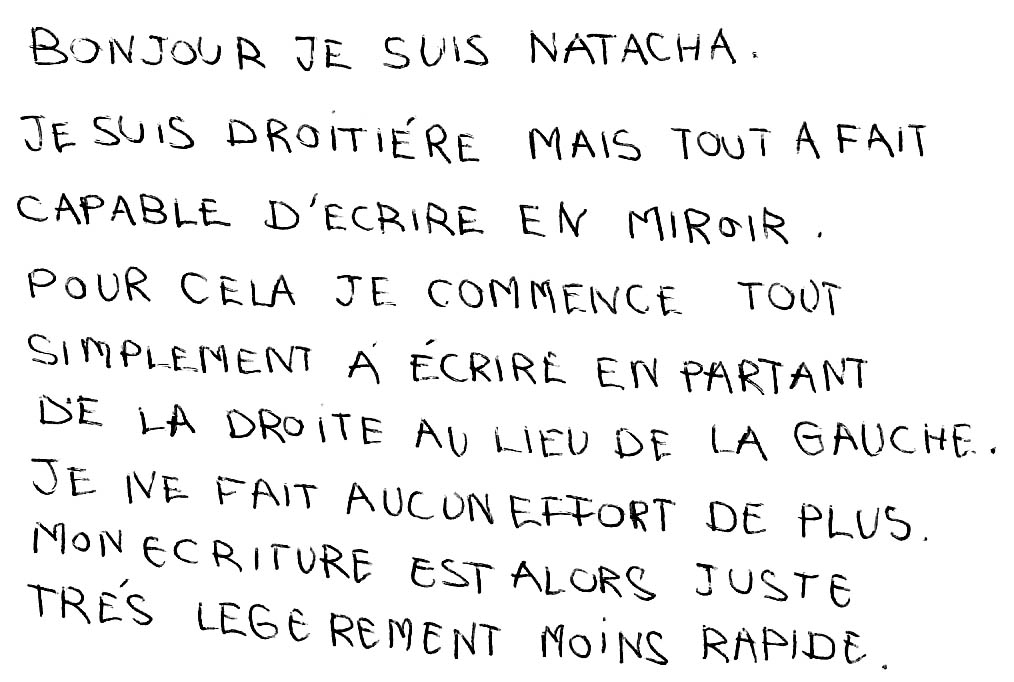 BONJOUR JE SUIS NATACHA.
JE SUIS DROITIÉRE MAIS TOUT A FAIT
CAPABLE D'ECRIRE EN MIROIR.
POUR CELA JE COMMENCE TOUT
SIMPLEMENT Á ÉCRIRE EN PARTANT
DE LA DROITE AU LIEU DE LA GAUCHE.
JE NE FAIT AUCUN EFFORT DE PLUS.
MON ECRITURE EST ALORS JUSTE
TRÉS LEGEREMENT MOINS RAPIDE.